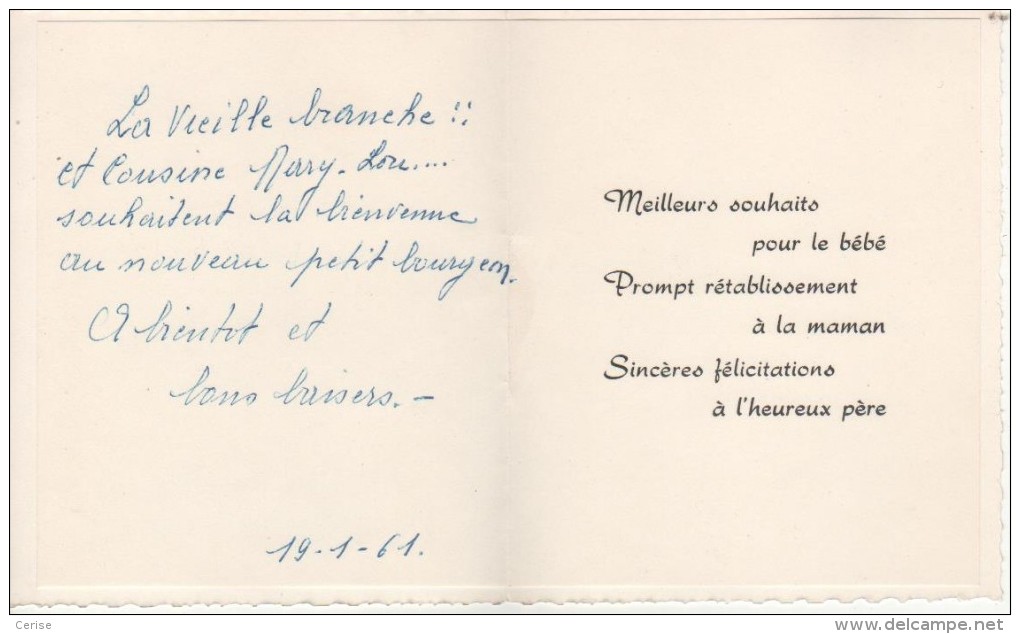 La Vieille branche !!
et Cousine Mary-Lou....
souhaitent la bienvenue
au nouveau petit bourgeon.
A bientot et
bons baisers.-
19-1-61.
Meilleurs souhaits
pour le bébé
Prompt rétablissement
à la maman
Sincères félicitations
à l'heureux père
Cerise
www.delcampe.net